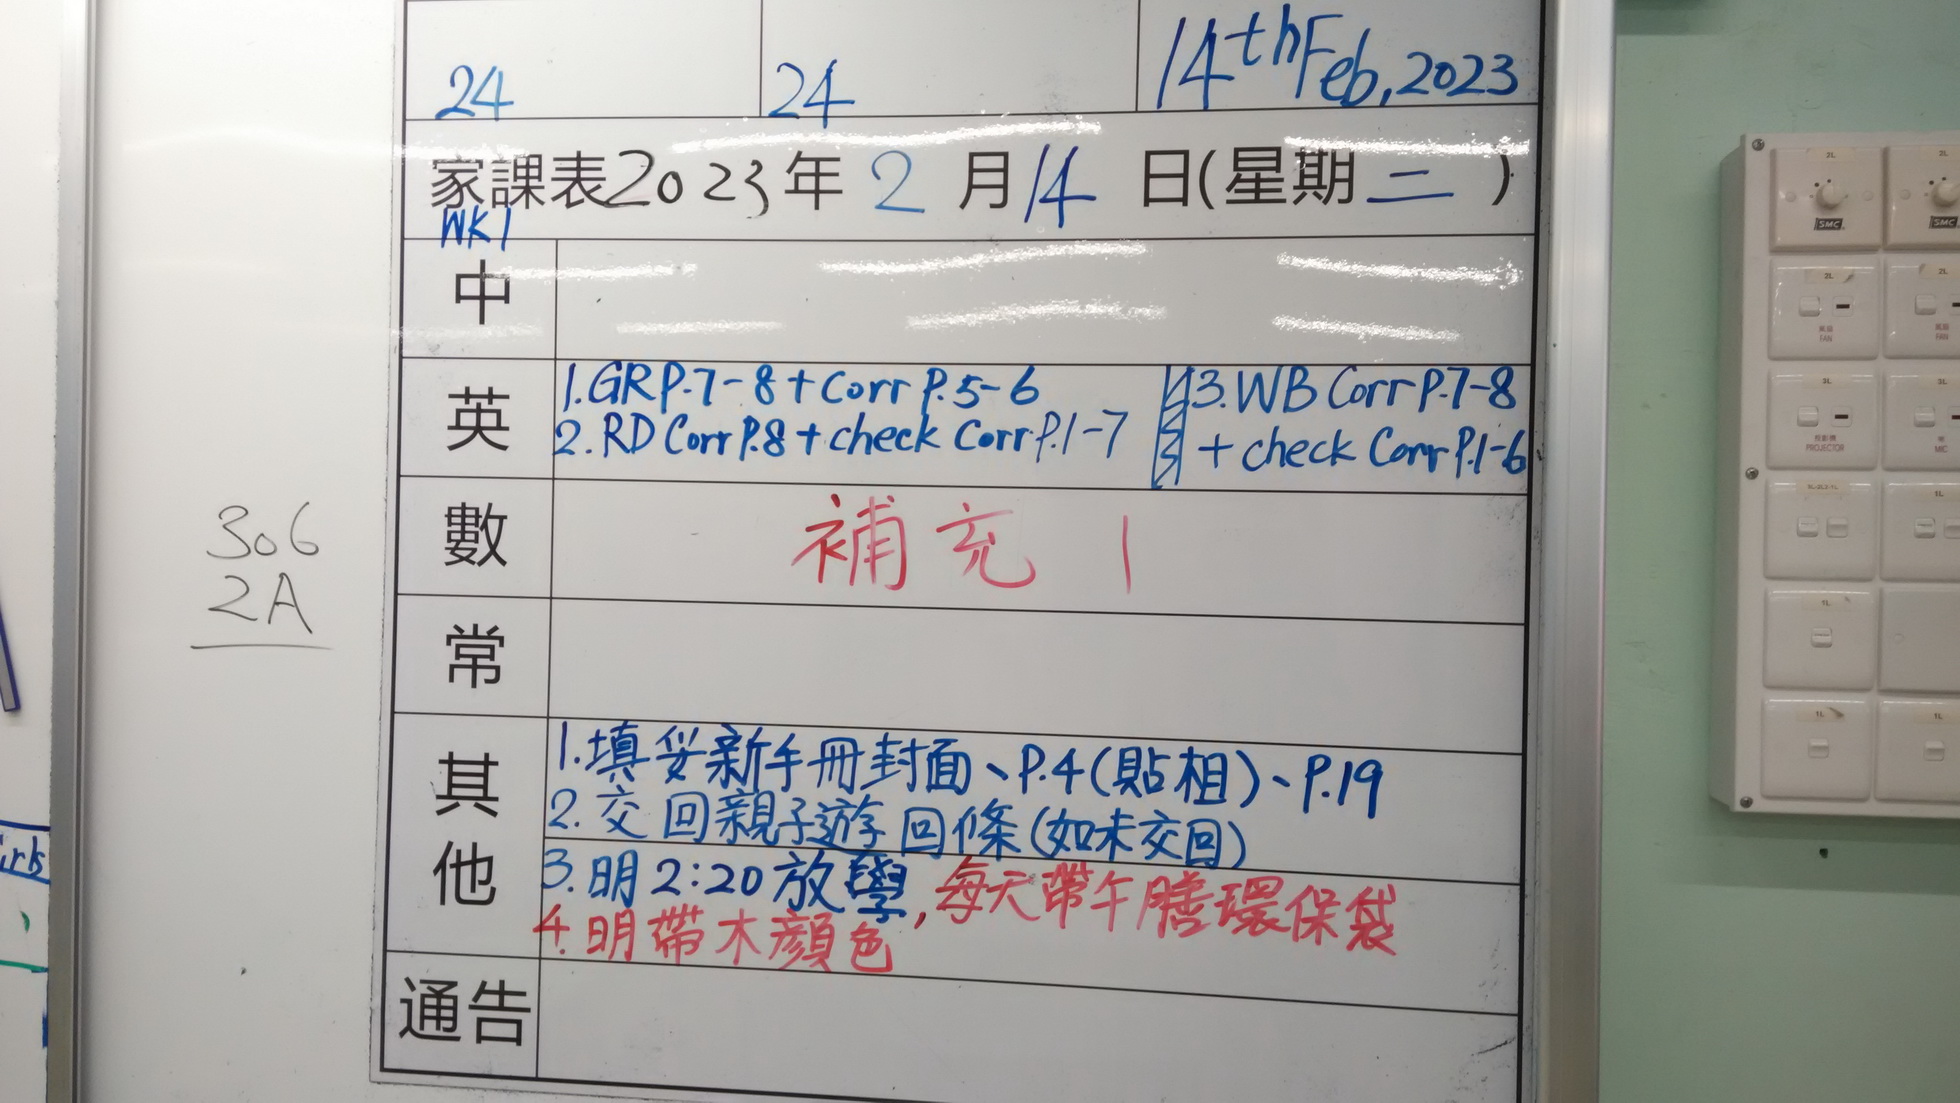 24 24 14th Feb, 2023
家課表2023年 2 月 14 日(星期 二 )
WK1
中
英 1. GR P.7-8 + Corr P.5-6
2. RD Corr P.8 + check Corr P.1-7
3. WB Corr P.7-8
+ check Corr P.1-6
數 補充 1
306
2A
常
其他 1. 填妥新手冊封面、P.4(貼相)、P.19
2. 交回親子遊回條(如未交回)
3. 明 2:20 放學, 每天帶午膳環保袋
4. 明帶木顏色
通告
2L
SMC
SMC
2L
風扇
FAN
FAN
投影機
PROJECTOR
MIC
1L
1L
1L
1L